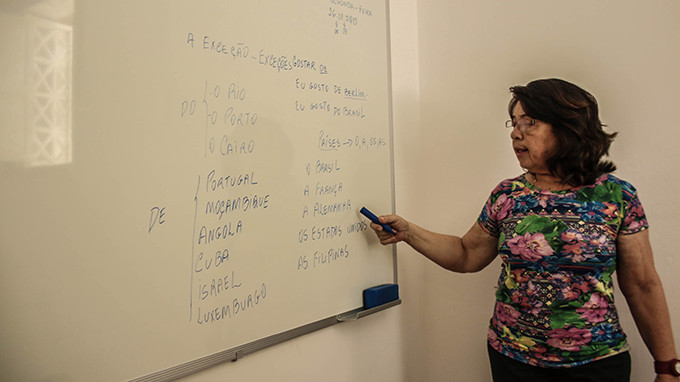 A EXCEÇÃO - EXCEÇÕES
DO
O RIO
O PORTO
O CAIRO
DE
PORTUGAL
MOÇAMBIQUE
ANGOLA
CUBA
ISRAEL
LUXEMBURGO
GOSTAR DE
EU GOSTO DE BERLIM.
EU GOSTO DO BRASIL
PAÍSES → O, A, OS, AS
O BRASIL
A FRANÇA
A ALEMANHA
OS ESTADOS UNIDOS
AS FILIPINAS